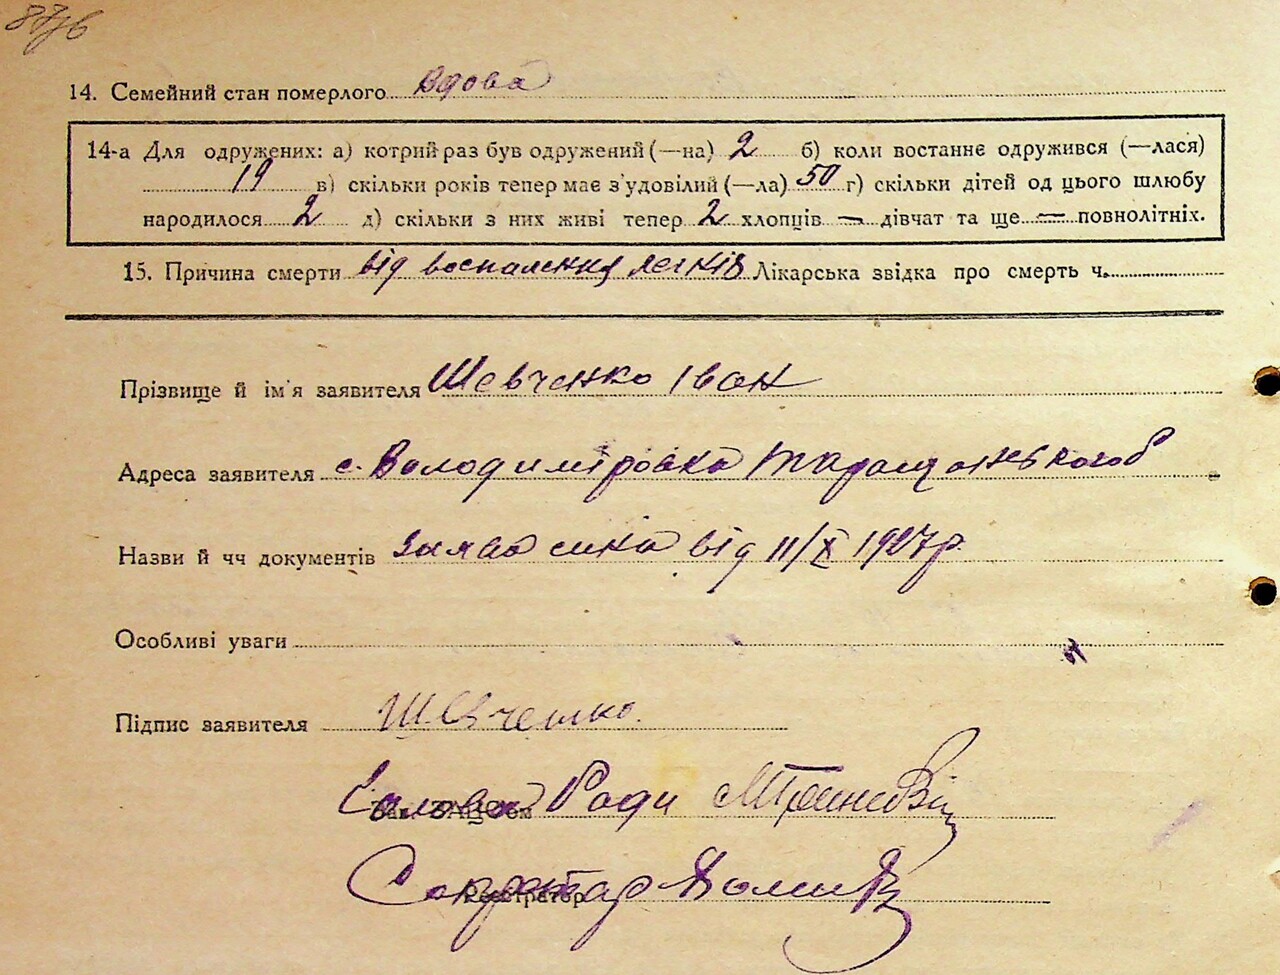 14. Семейний стан померлого Вдова
14-а Для одружених: а) котрий раз був одружений (—на) 2 б) коли востаннє одружився (—лася)
19 в) скільки років тепер має з'удовілий (—ла) 50 г) скільки дітей од цього шлюбу
народилося 2 д) скільки з них живі тепер 2 хлопців — дівчат та ще — повнолітніх.
15. Причина смерти від воспалення легків Лікарська звідка про смерть ч.
Прізвище й ім'я заявителя Шевченко Іван
Адреса заявителя с. Володимировка Таращанського
Назви й чч документів Заява сина від 11/X 1927р.
Особливі уваги
Підпис заявителя Шевченко.
Голова Ради
Секретар
Реєстратор